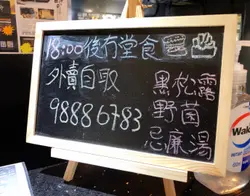 18:00後冇堂食
外賣自取
98886783
黑松露
野菌
忌廉湯
Wal